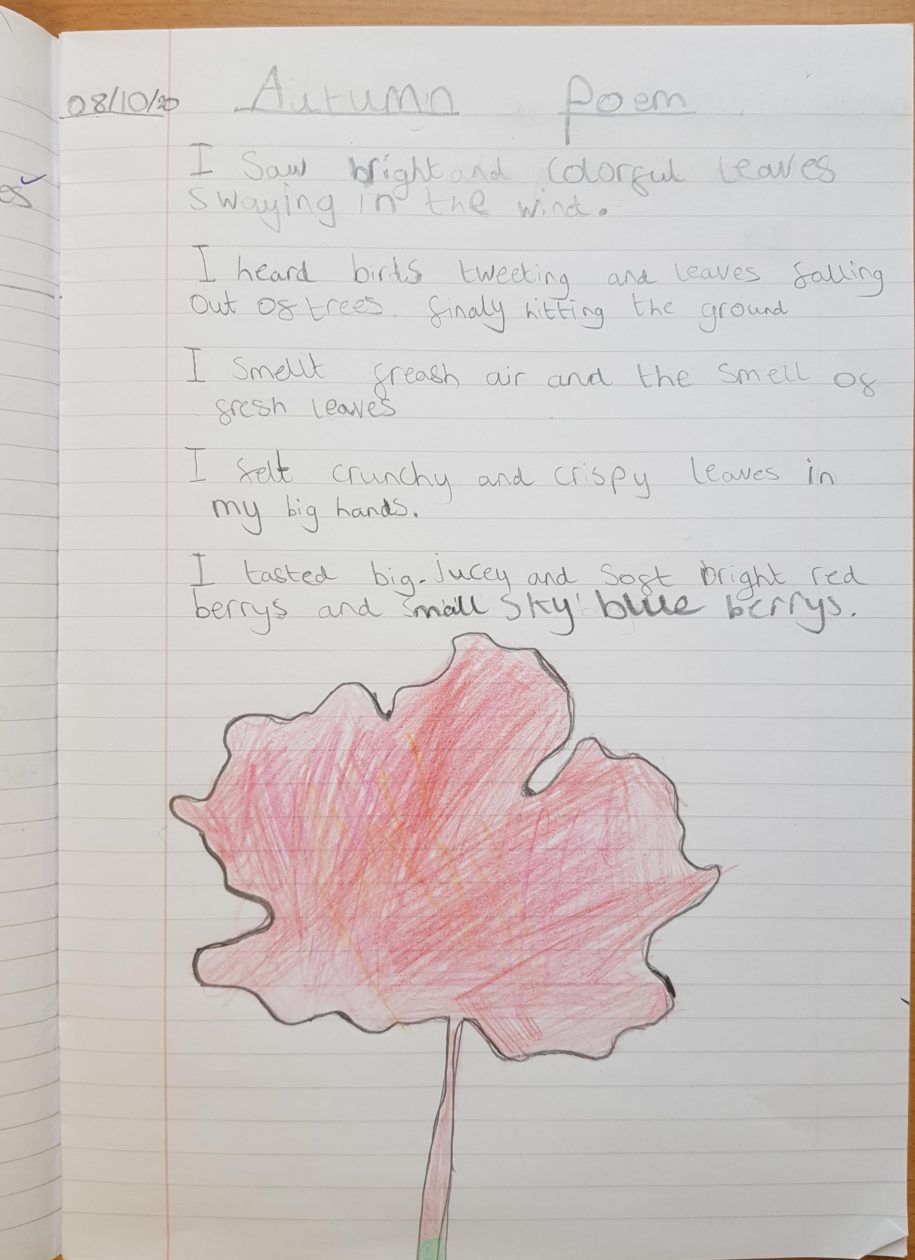 es
08/10/20 Autumn Poem
I Saw bright and Colorful leaves
swaying in the wind.
I heard birds tweeting and leaves falling
Out of trees. finaly hitting the ground
I Smellt freash air and the smell of
fresh leaves
I felt crunchy and crispy leaves in
my big hands.
I tasted big-Jucey and Soft bright red
berrys and Small sky blue berrys.